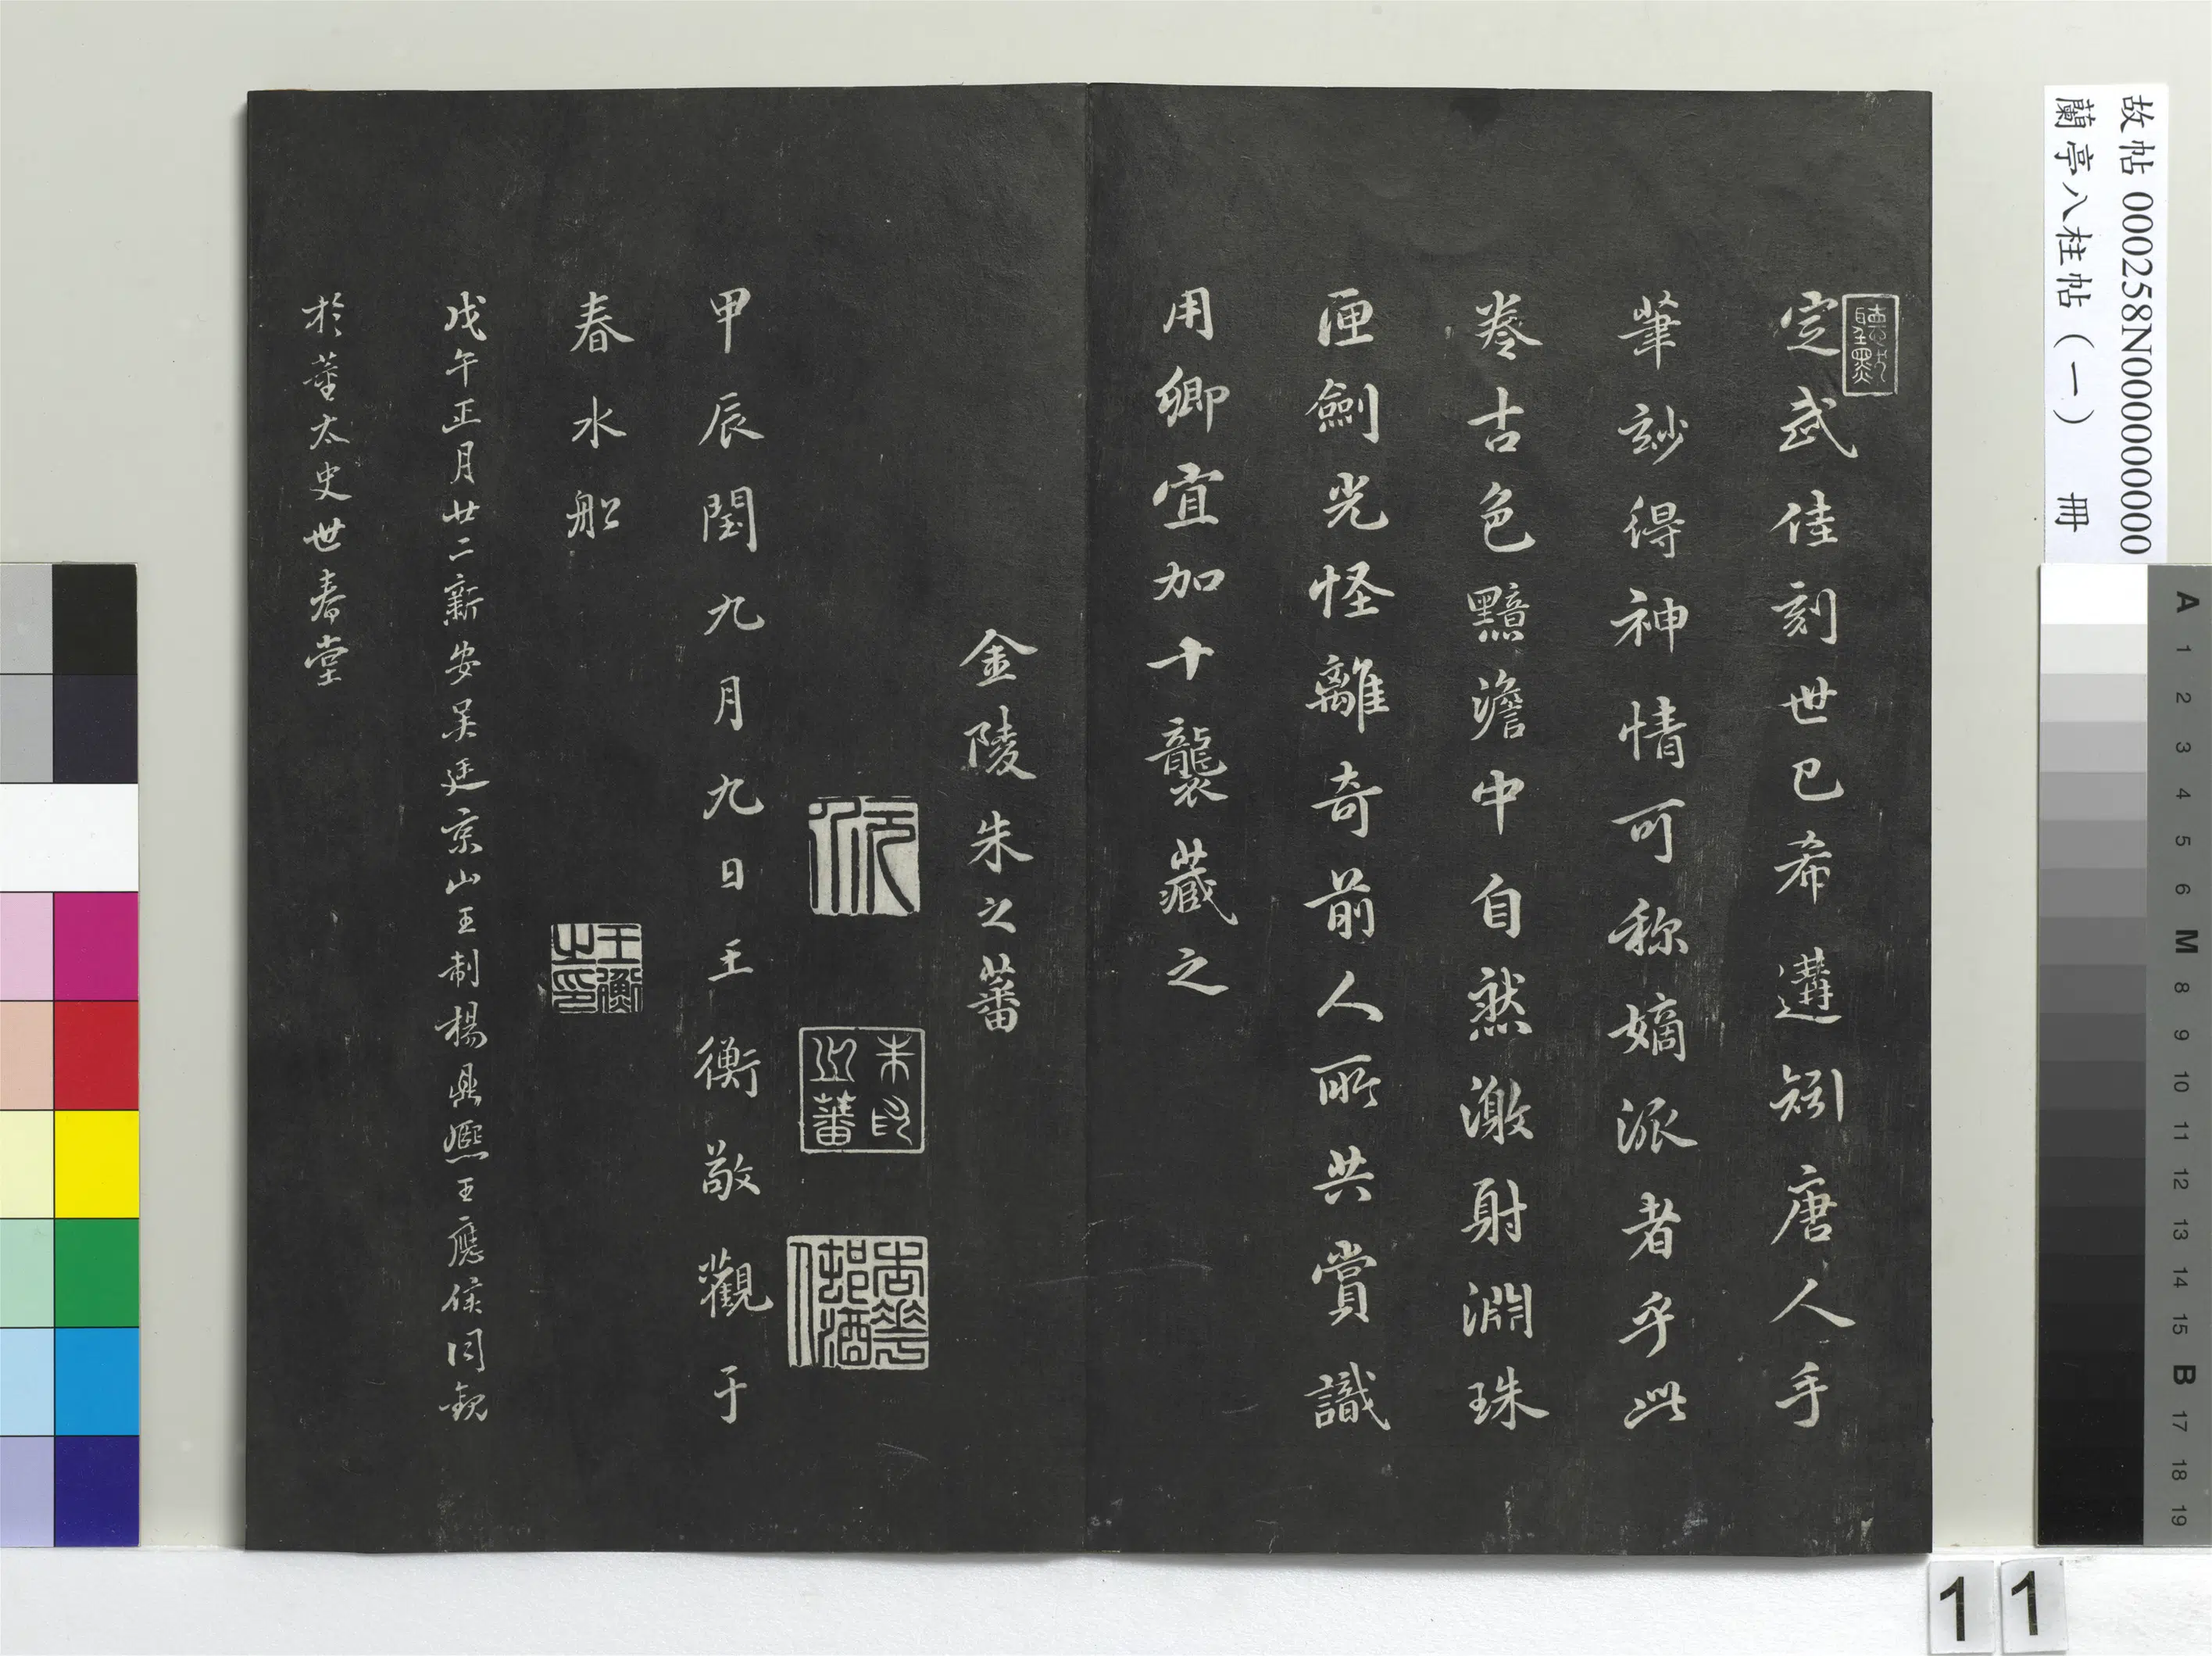 故帖000258N000000000
蘭亭八柱帖（一） 冊
定武佳刻世已希遘矧唐人手
筆玅得神情可称嫡派者乎此
卷古色黯澹中自然激射淵珠
匣劍光怪離奇前人所共賞識
用卿宜加十襲藏之
金陵朱之蕃
朱之蕃印
甲辰閏九月九日王衡敬觀于
春水船
王衡之印
戊午正月廿二新安吴廷京山王制楊鼎熈王應侯同觀
於董太史世春堂
A 1 2 3 4 5 6 M 8 9 10 11 12 13 14 15 B 17 18 19
1 1